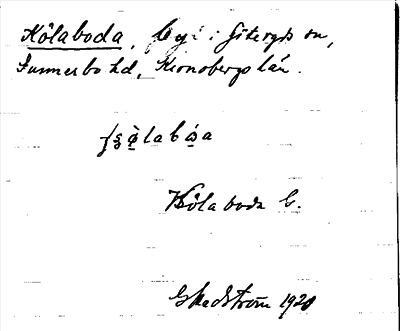 Kölaboda, by i Göteryds sn,
Sunnerbo hd, Kronobergs län.
Kölaboda C.
GHedström 1920